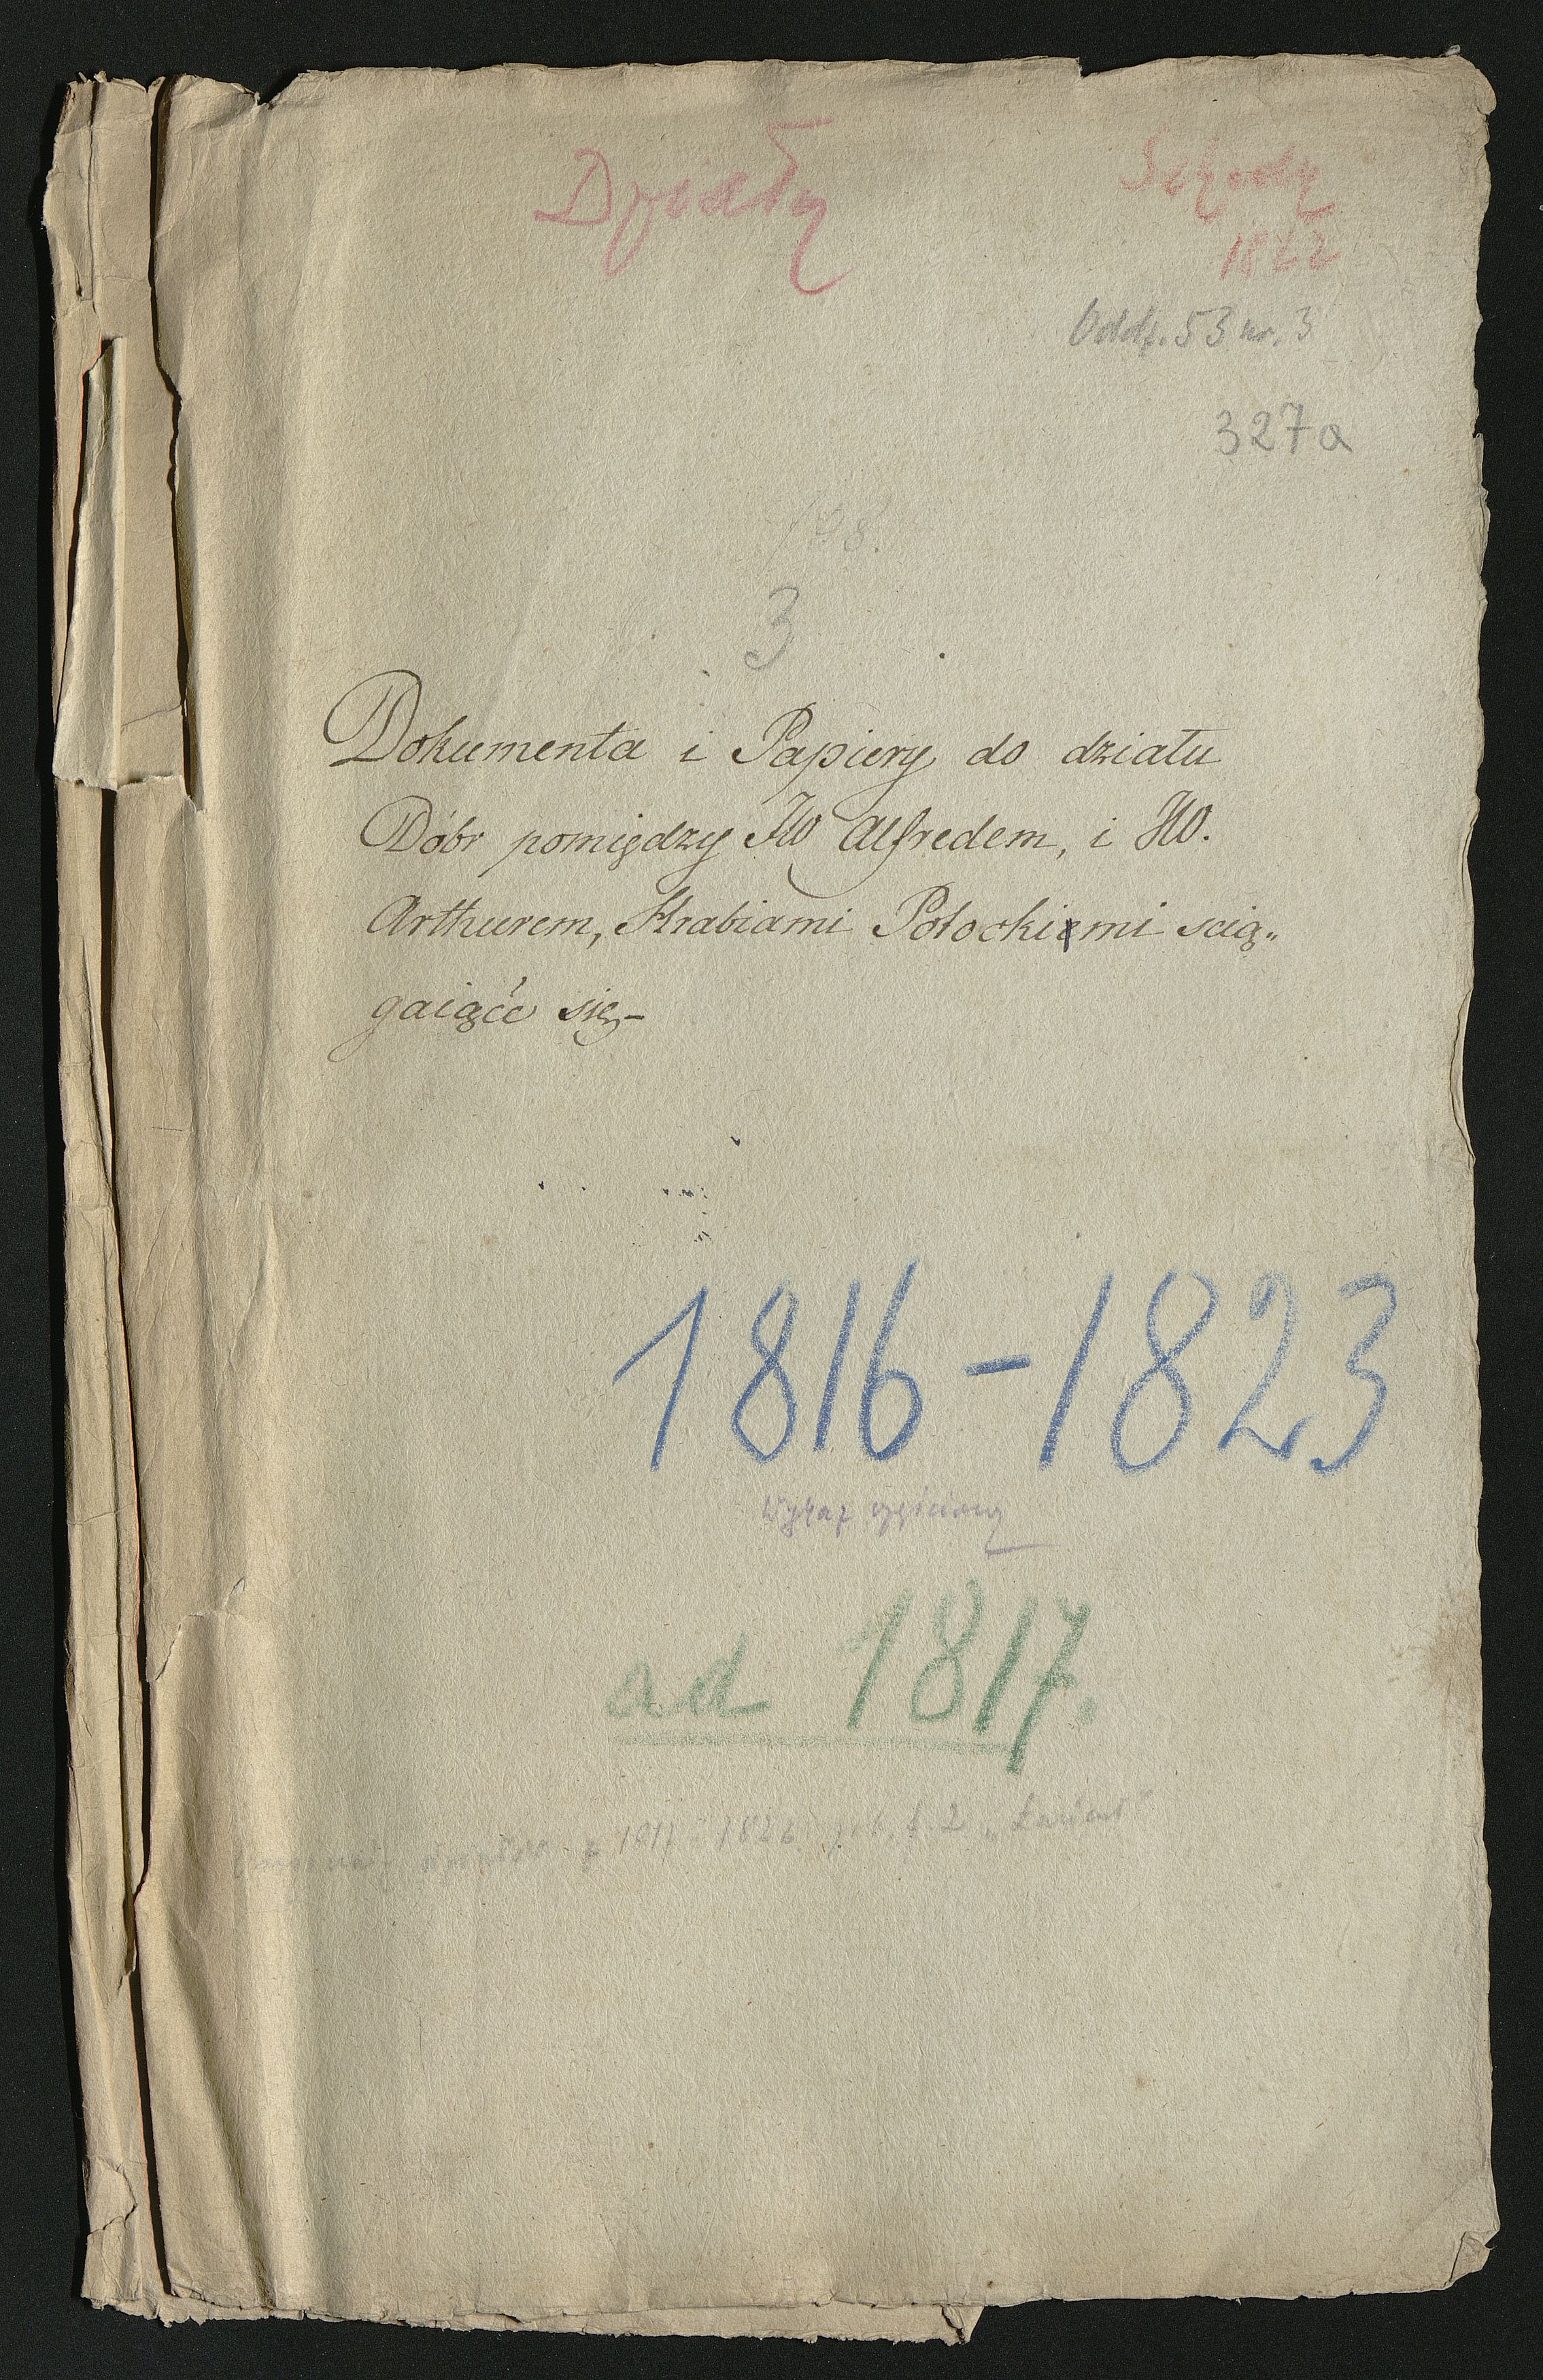 Działy
Schedy
1822
Oddz. 53 nr. 3
327a
3
Dokumenta i Papiery do działu
Dóbr pomiędzy JW Alfredem, i JW.
Arthurem, Hrabiami Potockiemi ścią„
gaiące się–
1816-1823
Wykaz
ad 1817.
1817 1826 2 „Łańcut"